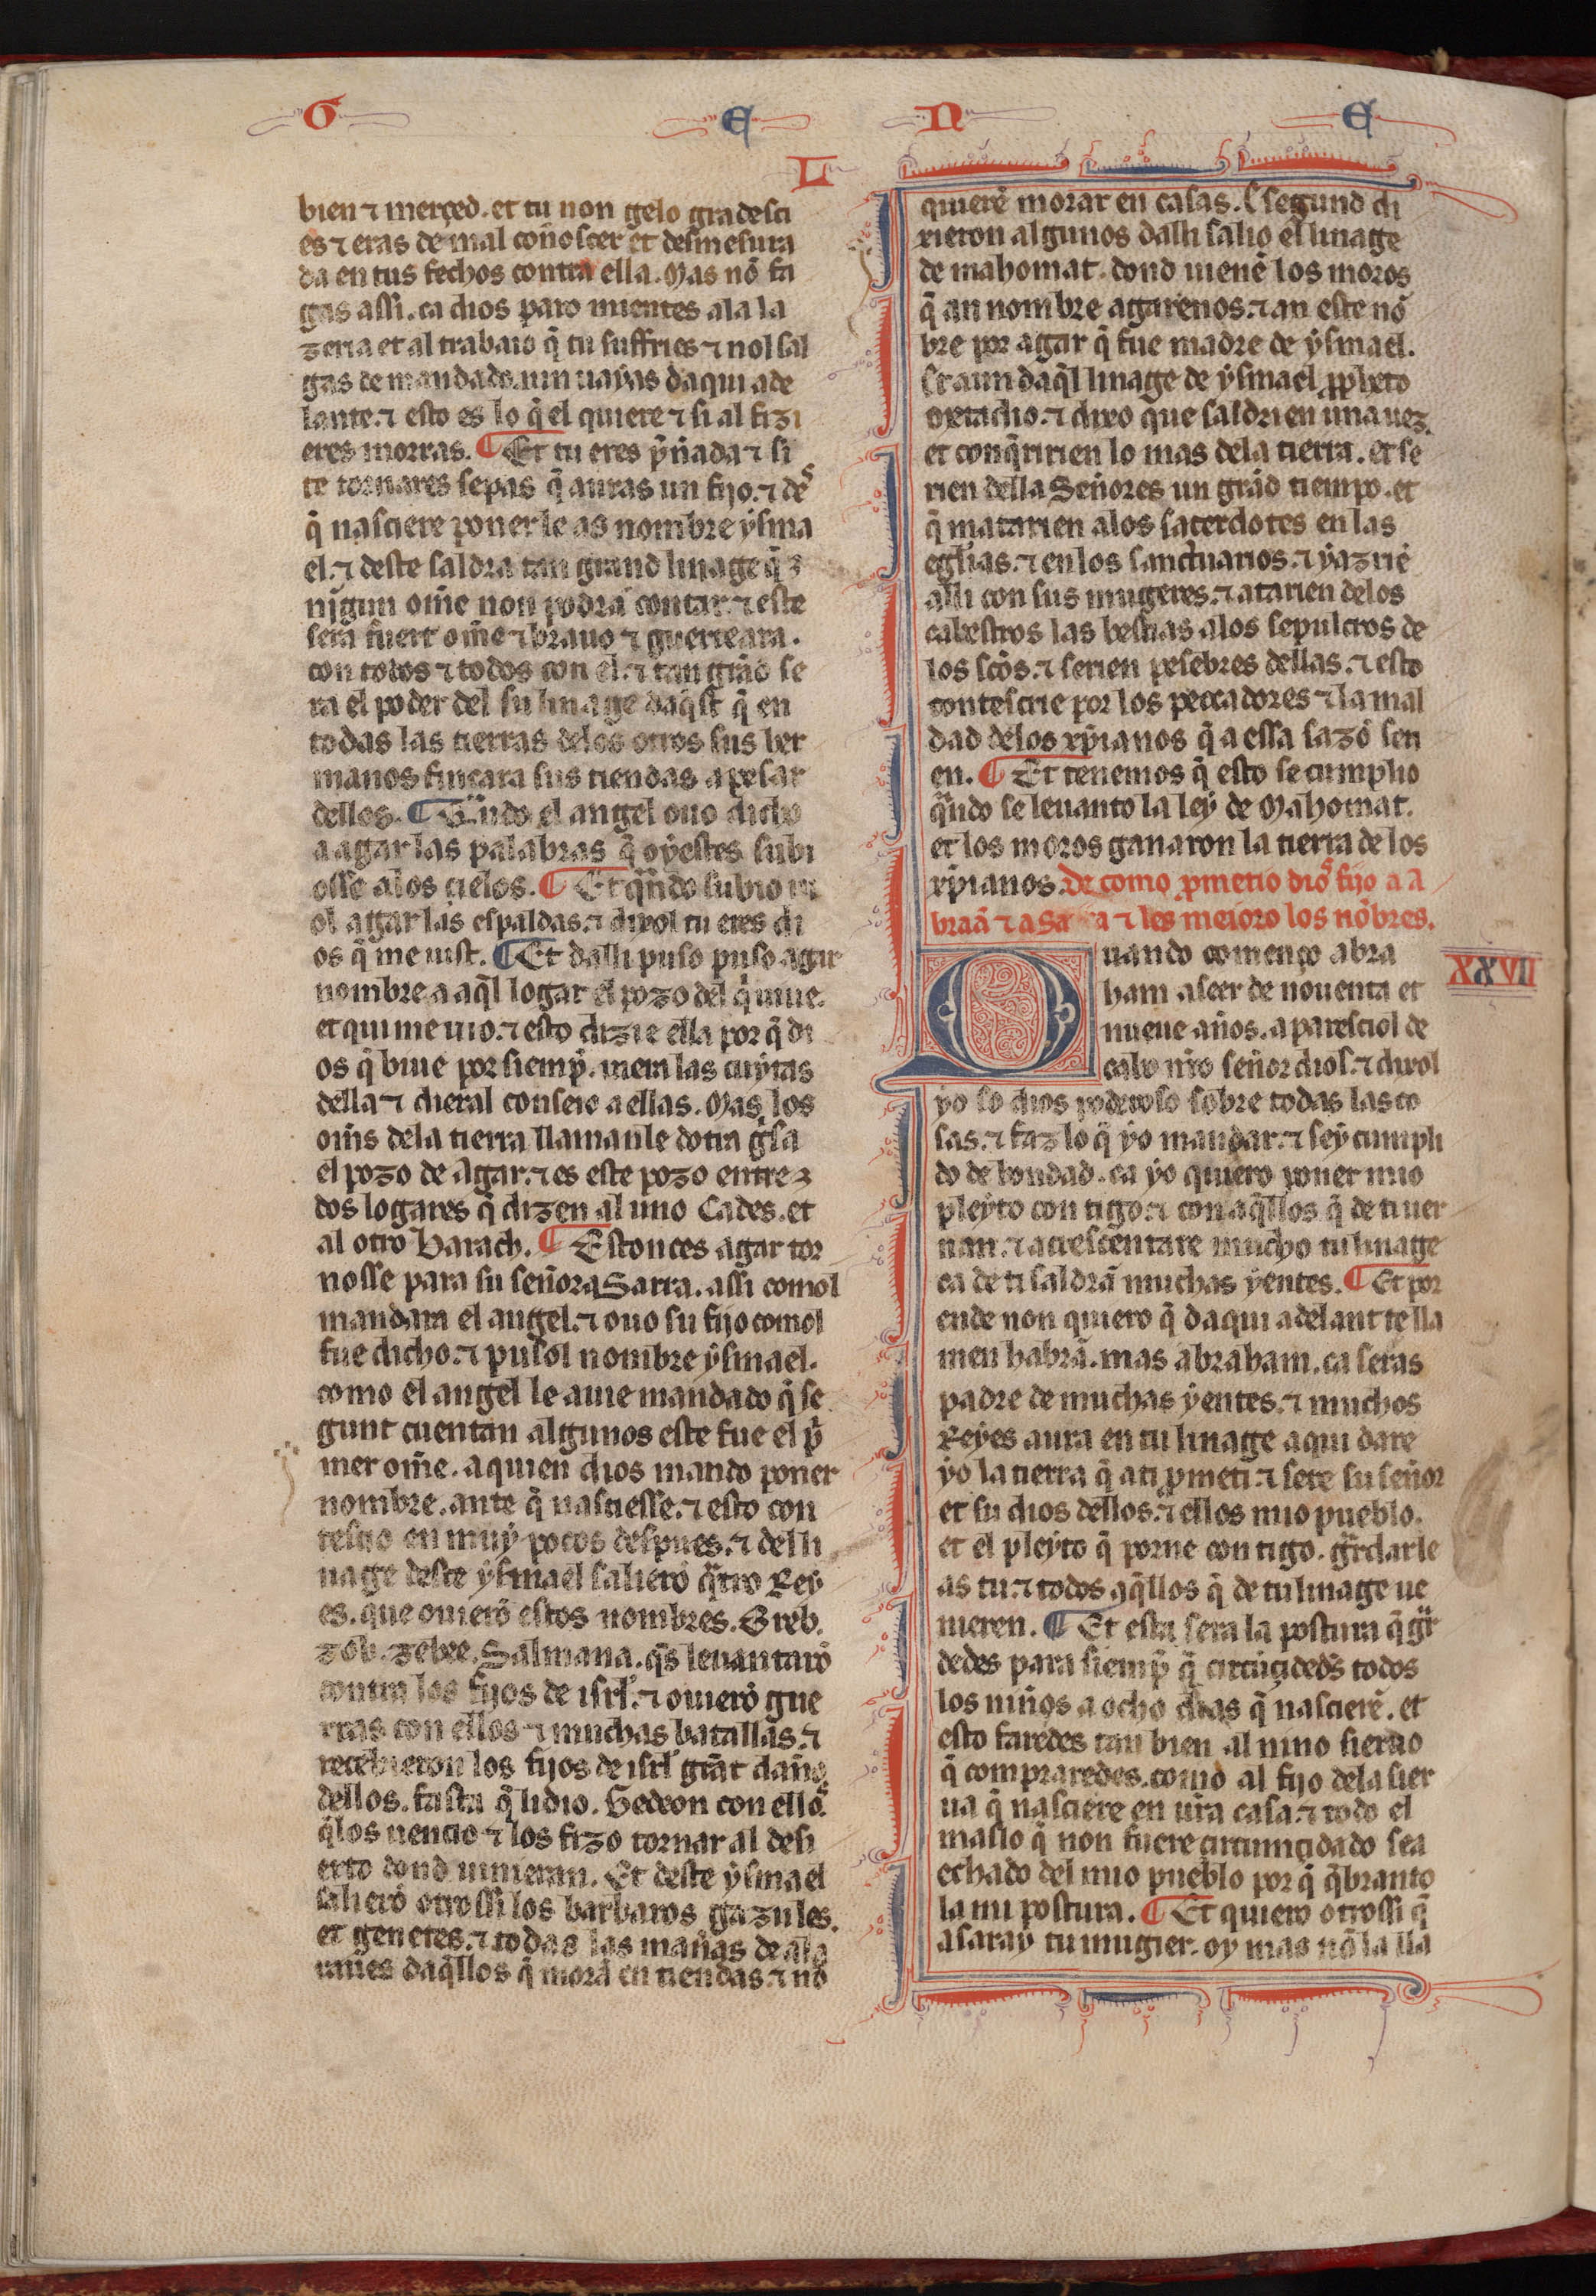 G E N E
L
bien ⁊ merçed. et tu non gelo gradesci
es ⁊ eras de mal coñoscer et desmesura
da en tus fechos contra ella. Mas nõ fa
gas assi. ca dios paro mientes a la la
zeria et al trabaio q̃ tu suffries ⁊ nol sal
gas de mandado. nin uayas daqui ade
lante. ⁊ esto es lo q̃ el quiere ⁊ si al fizi
eres morras. ¶ Et tu eres p̃ñada ⁊ si
te tornares sepas q̃ auras un fijo. ⁊ des
q̃ nasciere poner le as nombre ysma
el. ⁊ deste saldra tan grand linage q̃
nĩgun om̃e non podra contar. ⁊ este
sera fuert om̃e ⁊ brauo ⁊ guerreara.
con todos ⁊ todos con el. ⁊ tan grãd se
ra el poder del su linage daq̃st q̃ en
todas las tierras delos otros sus her
manos fincara sus tiendas a pesar
dellos. ¶ Quãndo el angel ouo dicho
a agar las palabras q̃ oyestes subi
osse alos cielos. ¶ Et quãndo subio
ol agar las espaldas. ⁊ dixol tu eres di
os q̃ me uist. ¶ Et dalli puso puso agar
nombre a aq̃l logar el pozo del q̃ uiue.
et qui me uio. ⁊ esto dizie ella por q̃ di
os q̃ biue por siemp̃. uiera las cuytas
della ⁊ dieral conseio a ellas. Mas los
om̃s dela tierra llamanle dotra gisa
el pozo de Agar. ⁊ es este pozo entre
dos logares q̃ dizen al uno Cades. et
al otro Barach. ¶ Estonces agar tor
nosse para su señora Sarra. assi comol
mandara el angel. ⁊ ouo su fijo comol
fue dicho. ⁊ pusol nombre ysmael.
como el angel le auie mandado q̃ se
gunt cuentan algunos este fue el p̃
mer om̃e. a quien dios mando poner
nombre. ante q̃ nasciesse. ⁊ esto con
tesçio en muy pocos despues. ⁊ del li
nage deste ysmael salierõ q̃tro Rey
es. que ouierõ estos nombres. Oreb.
zeb. zebee. Salmana. q̃s leuantarõ
contra los fijos de isrl̃. ⁊ ouierõ gue
rras con ellos ⁊ muchas batallas. ⁊
recebieron los fijos de isrl̃ grãt daño
dellos. fasta q̃ lidio. Gedeon con ellos
q̃los uencio ⁊ los fizo tornar al desi
erto dond uinieran. Et deste ysmael
salierõ otrossi los barbaros gazules.
et genetes. ⁊ todas las mañas de ala
uties daq̃llos q̃ morã en tiendas. ⁊ nõ
quierẽ morar en casas. E segund di
xieron algunos dalli salio el linage
de mahomat. dond uienẽ los moros
q̃ an nombre agarenos. ⁊ an este nõ
bre por agar q̃ fue madre de ysmael.
Et aun daq̃l linage de ysmael ꝓpheto
metudio. ⁊ dixo que saldrien una uez.
et conq̃ririen lo mas dela tierra. et se
rien della Señores un grãd tiempo. et
q̃ matarien alos sacerdotes en las
egl̃ias. ⁊ en los sanctuarios. ⁊ yazriẽ
alli con sus mugeres. ⁊ atarien delos
cabestros las bestias alos sepulcros de
los scõs. ⁊ serien pesebres dellas. ⁊ esto
contescrie por los peccadores ⁊ la mal
dad delos xp̃ianos q̃ a essa sazõ seri
en. ¶ Et tenemos q̃ esto se cumplio
q̃ndo se leuanto la ley de Mahomat.
et los moros ganaron la tierra de los
xp̃ianos. De como ꝓmetio dios fijo a A
braã ⁊ a Sarra ⁊ les meioro los nõbres.
XXVII
Quando començo abra
ham a seer de nouenta et
nueue años. aparesciol de
cabo nr̃o señor dios. ⁊ dixol
yo so dios poderoso sobre todas las co
sas. ⁊ faz lo q̃ yo mandar. ⁊ sey cumpli
do de bondad. ca yo quiero poner mio
pleyto con tigo. ⁊ con aq̃llos q̃ de ti uer
nan. ⁊ acrescentare mucho tu linage
ca de ti saldrã muchas yentes. ¶ Et por
ende non quiero q̃ daqui adelant te lla
men habrã. mas abraham. ca seras
padre de muchas yentes. ⁊ muchos
Reyes aura en tu linage a qui dare
yo la tierra q̃ a ti ꝓmeti. ⁊ sere su señor
et su dios dellos. ⁊ ellos mio pueblo.
et el pleyto q̃ porne con tigo. gr̃darle
as tu. ⁊ todos aq̃llos q̃ de tu linage ue
nieren. ¶ Et esta sera la postura q̃ gr̃
dedes para siemp̃ q̃ circũçidedes todos
los niños a ocho dias q̃ nascierẽ. et
esto faredes tan bien al nino sieruo
q̃ compraredes. como al fijo dela sier
ua q̃ nasciere en ur̃a casa. ⁊ todo el
maslo q̃ non fuere circunçidado sea
echado del mio pueblo por q̃ q̃branto
la mi postura. ¶ Et quiero otrossi q̃
a saray tu mugier. oy mas nõ la lla